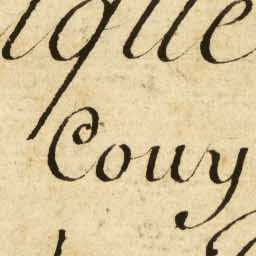 ique
Couy